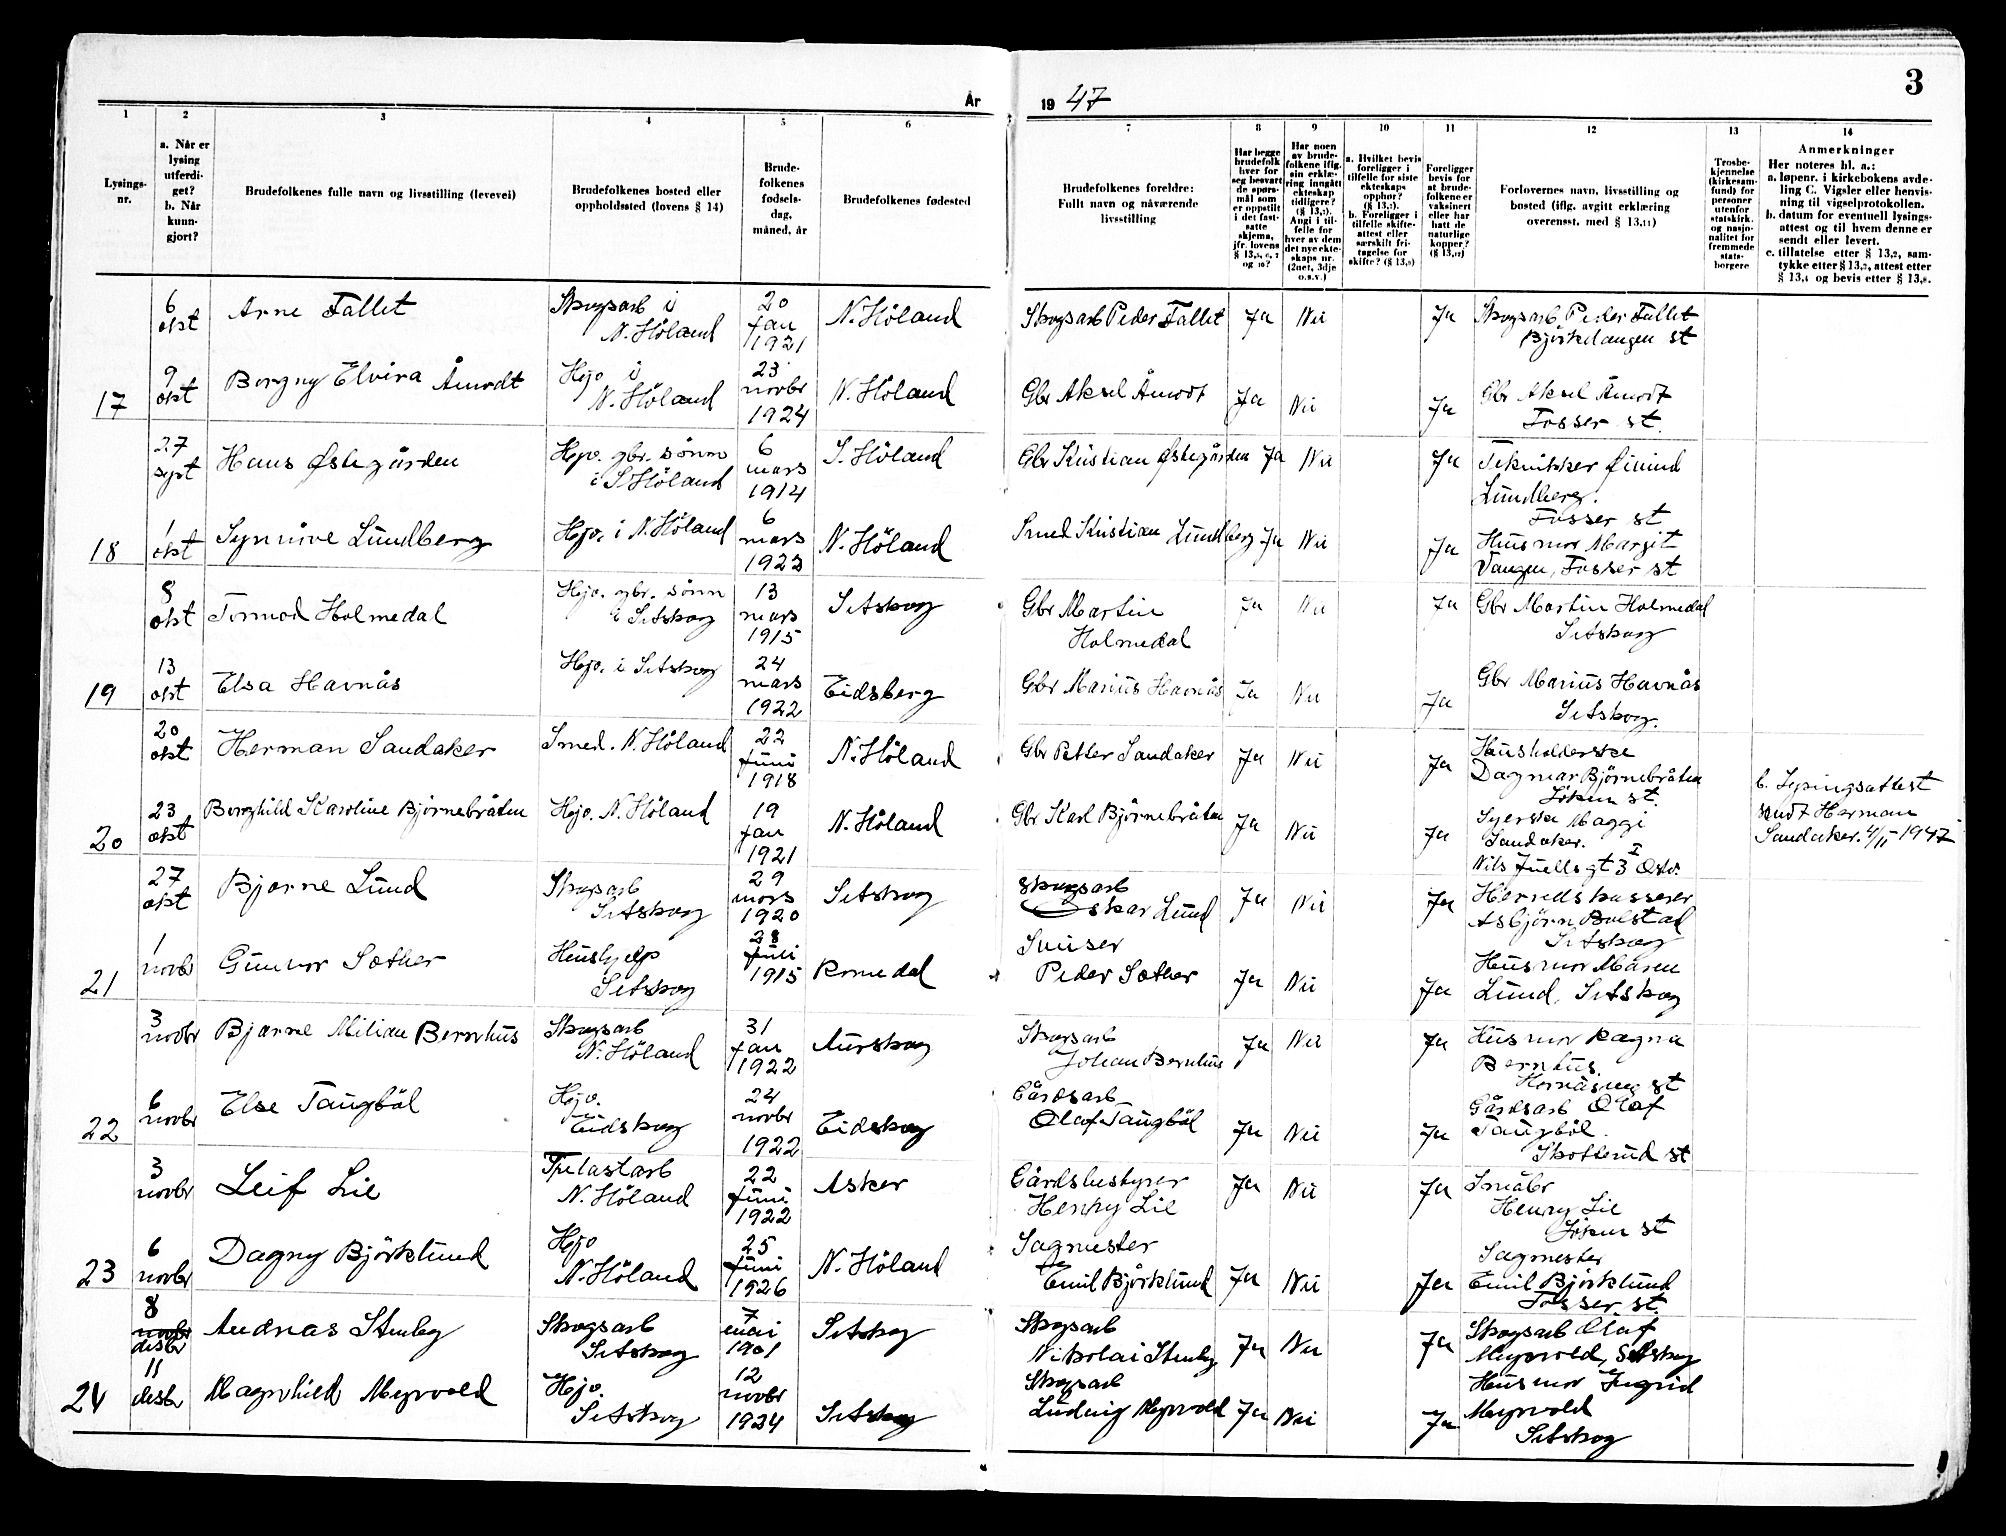 3
År
19 47
1
2
3
4
5
6
7
8
9
10
11
12
13
14
Lysings-
nr.
a. Når er
lysing
utferdi-
get?
b. Når
kunn-
gjort?
Brudefolkenes fulle navn og livsstilling (levevei)
Brudefolkenes bosted eller
oppholdssted (lovens § 14)
Brude-
folkenes
fødsels-
dag,
måned, år
Brudefolkenes fødested
Brudefolkenes foreldre:
Fullt navn og nåværende
livsstilling
Har begge
brudefolk
hver for
seg besvart
de spørs-
mål som
er oppstilt
i det fast-
satte
skjema,
jfr. lovens
og 10?
Har noen
av brude-
folkene iflg.
sin erklæ-
ring inngått
ekteskap
tidligere?
Angi i til-
felle for
hver av dem
det nye ekte-
skaps nr.
(2net, 3dje
o.s.v.)
a. Hvilket bevis
foreligger i
tilfelle for siste
ekteskaps
opphør?
b. Foreligger i
tilfelle skifte-
attest eller
særskilt fri-
tagelse for
Foreligger
bevis for
at brude-
folkene er
vaksinert
eller har
hatt de
naturlige
kopper?
Forlovernes navn, livsstilling og
bosted (iflg. avgitt erklæring
overensst. med § 13,11)
Trosbe-
kjennelse
(kirkesam-
fund) for
personer
utenfor
statskirk.
og nasjo-
nalitet for
fremmede
stats-
borgere
Anmerkninger
Her noteres bl. a.:
a. løpenr. i kirkebokens avde-
ling C. Vigsler eller henvis-
ning til vigselprotokollen.
b. datum for eventuell lysings-
attest og til hvem denne er
sendt eller levert.
c. tillatelse etter § 13,2, sam-
tykke etter § 13,3, attest etter
§ 13,4 og bevis etter § 13,8.
6
okt
Arne Fallet
Skogsarb i
N. Höland
20
jan
1921
N. Höland
Skogsarb Peder Fallet
Ja
Nei
Ja
Skogsarb Peder Fallet
Björkelangen st
17
9
okt
Borgny Elvira Åmodt
Hjv i
N. Höland
23
novbr
1924
N. Höland
Gbr Aksel Åmodt
Ja
Nei
Ja
Gbr Aksel Åmodt
Fosser st.
27
sept
Hans Østegården
Hjv. gbr. sönn
i S Höland
6
mars
1914
S. Höland
Gbr Kristian Østegården
Ja
Nei
Ja
Tekniker Øivind
Lundberg.
Fosser st
18
1
okt
Synnöve Lundberg
Hjv. i N. Höland
6
mars
1923
N. Höland
Smed Kristian Lundberg
Ja
Nei
Ja
Husmor Margit
Vangen, Fosser st
8
okt
Tormod Holmedal
Hjv. gbr. sönn
i Setskog
13
mars
1915
Setskog
Gbr Martin
Holmedal
Ja
Nei
Ja
Gbr Martin Holmedal
Setskog
19
13
okt
Elsa Havnås
Hjv. i Setskog
24
mars
1922
Eidsberg
Gbr Marius Havnås
Ja
Nei
Ja
Gbr Marius Havnås
Setskog.
20
okt
Herman Sandaker
Smed. N. Höland
22
juni
1918
N. Höland
Gbr Petter Sandaker
Ja
Nei
Ja
Husholderske
Dagmar Björnebråten
Löken st.
20
23
okt
Borghild Karoline Björnebråten
Hjv. N. Höland
19
jan
1921
N. Höland
Gbr Karl Björnebråten
Ja
Nei
Ja
Syerske Maggi
Sandaker.
Nils Juellsgt 3 I Oslo.
b. Lysingsattest
sendt Herman
Sandaker. 4/11-1947
27
okt
Bjarne Lund
Skogsarb
Setskog
29
mars
1920
Setskog
Skogsarb
Oskar Lund
Ja
Nei
Ja
Herredskasserer
Asbjörn Bolstad
Setskog
21
1
novbr
Gunvor Sæther
Hushjelp
Setskog
28
juli
1915
Romedal
Snuser
Peder Sæther
Ja
Nei
Ja
Husmor Maren
Lund, Setskog
3
novbr
Bjarne Milian Bernhus
Skogsarb
N. Höland
31
jan
1922
Aurskog
Skogsarb
Johan Bernhus
Ja
Nei
Ja
Husmor Ragna
Bernhus.
Hornåseng st
22
6
novbr
Else Taugböl
Hjv.
Eidskog
24
novbr
1922
Eidskog
Gårdsarb
Olaf Taugböl
Ja
Nei
Ja
Gårdsarb Olaf
Taugböl.
Skotterud st
3
novbr
Leif Lie
N. Höland
22
juni
1922
Asker
Gårdsbestyrer
Henry Lie
Ja
Nei
Ja
Småbr
Henry Lie
Löken st
23
6
novbr
Dagny Björklund
Hjv
N. Höland
25
juni
1926
N. Höland
Sagmester
Emil Björklund
Ja
Nei
Ja
Sagmester
Emil Björklund
Fosser. st.
8
novbr
desbr
Andreas Stenby
Skogsarb
Setskog
7
mai
1901
Setskog
Skogsarb
Nikolai Stenby
Ja
Nei
Ja
Skogsarb Olaf
Myrvold, Setskog
24
11
desbr
Magnhild Myrvold
Hjv.
Setskog
12
novbr
1924
Setskog
Skogsarb
Ludvig Myrvold
Ja
Nei
Ja
Husmor Ingrid
Myrvold
Setskog